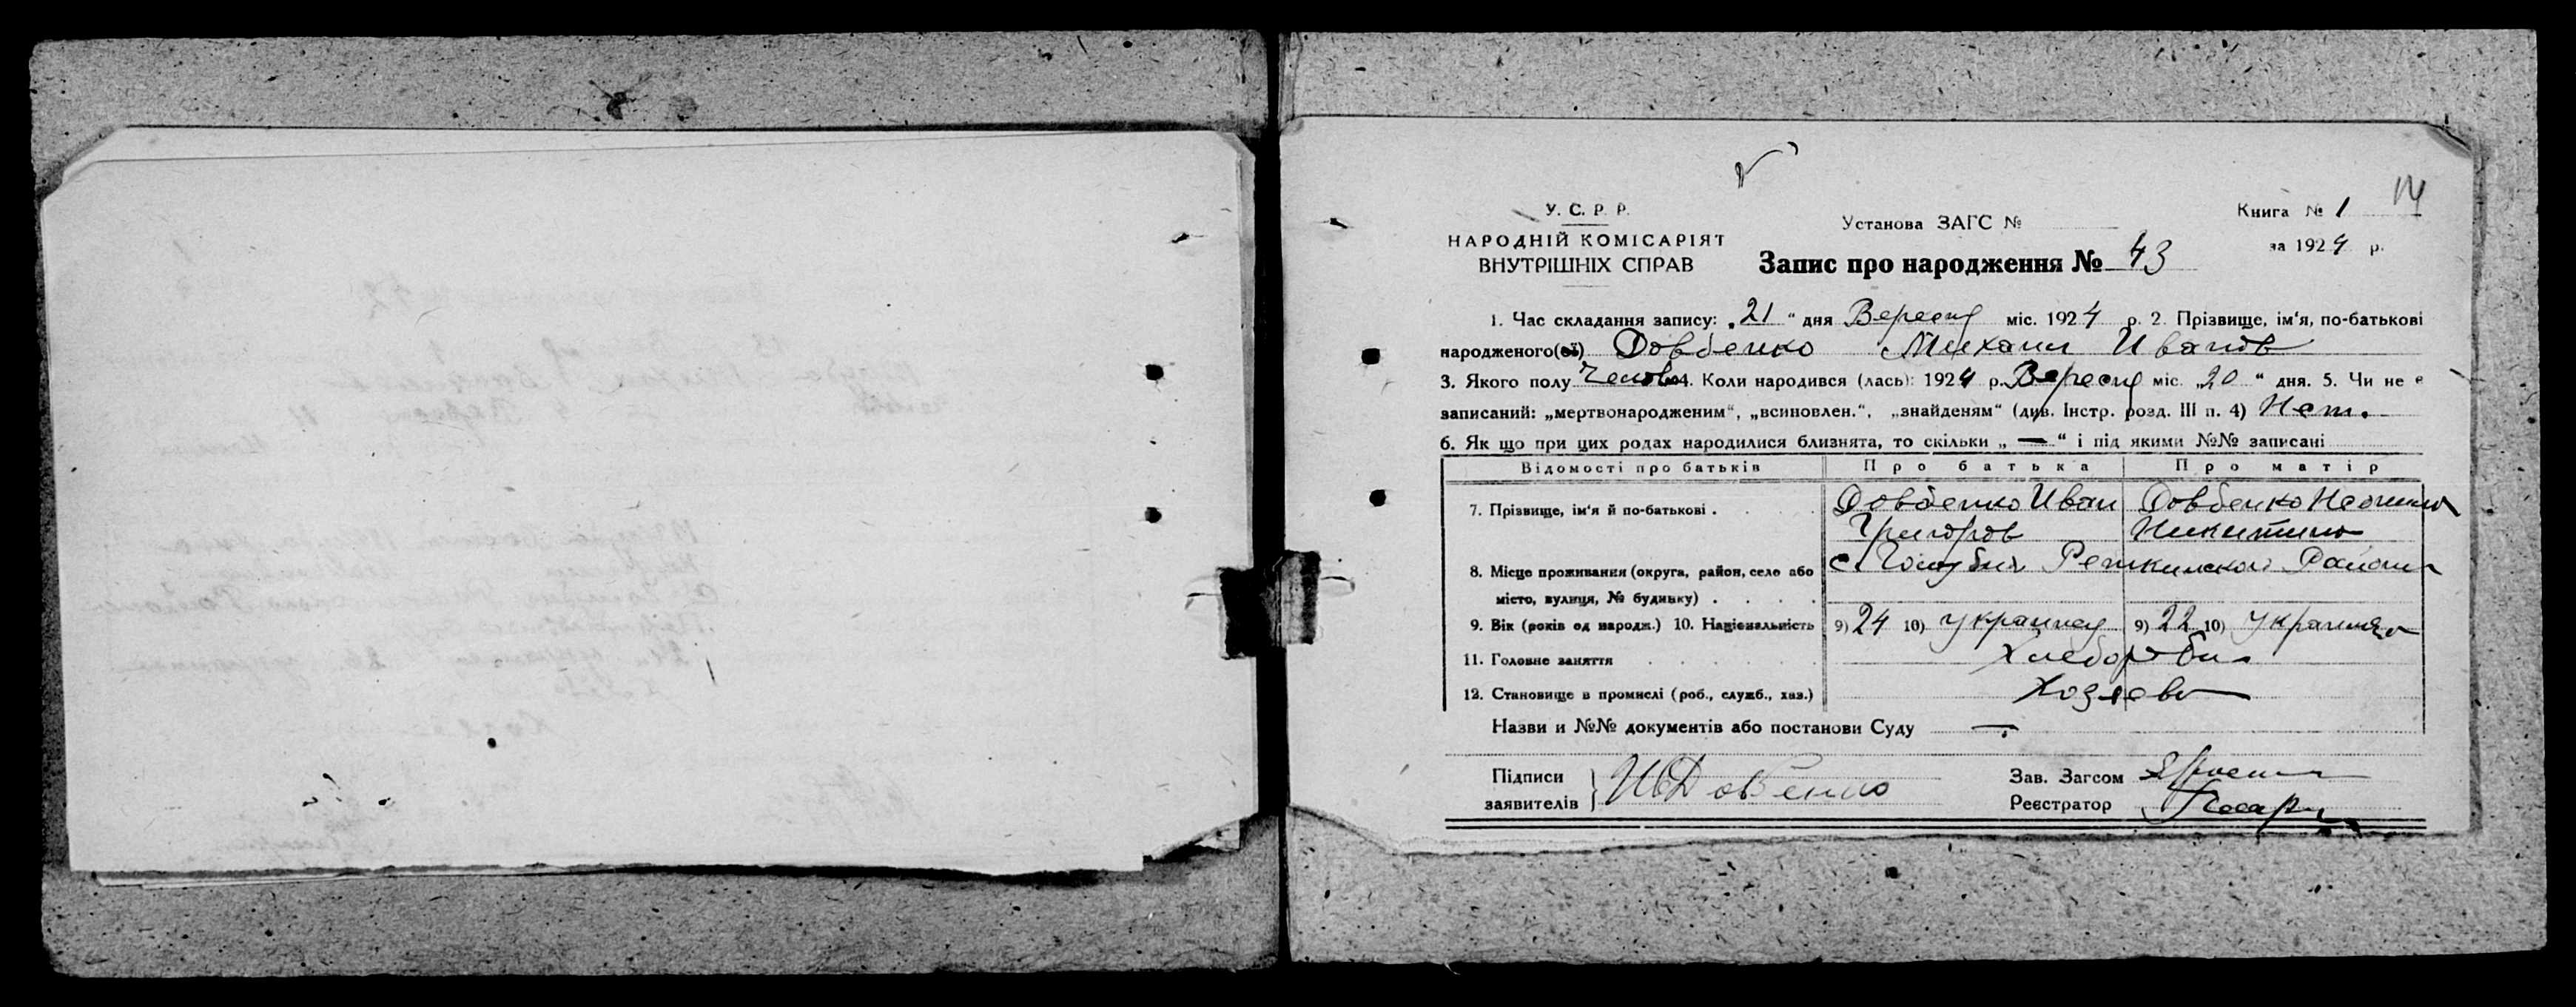 14
У. С. Р. Р.
НАРОДНІЙ КОМІСАРІЯТ
ВНУТРІШНІХ СПРАВ
Установа ЗАГС №
Книга № 1
за 1924 р.
Запис про народження № 43
1. Час складання запису: „21“ дня Вересня міс. 1924 р. 2. Прізвище, ім'я, по-батькові
народженого(ої) Довбенко Михаил Иванов
3. Якого полу Челов 4. Коли народився (лась): 1924 р. Вересня міс. „20“ дня. 5. Чи не є
записаний: „мертвонародженим“, „всиновлен.“, „знайденям“ (див. Інстр. розд. III п. 4) Нет.
6. Як що при цих родах народилися близнята, то скільки „—“ і під якими №№ записані
Відомості про батьків Про батька Про матір
7. Прізвище, ім'я й по-батькові . Довбенко Иван Григоров Довбенко Никитина
8. Місце проживання (округа, район, село або
місто, вулиця, № будинку) . . . . с. Голубня Района
9. Вік (років од народж.) 10. Національність 9) 24 10) украинец 9) 22 10) украинка
11. Головне заняття Хлеборобы
12. Становище в промислі (роб., служб., хаз.) Хозяева
Назви и №№ документів або постанови Суду —
Підписи
заявителів } ИДовбенко
Зав. Загсом
Реєстратор